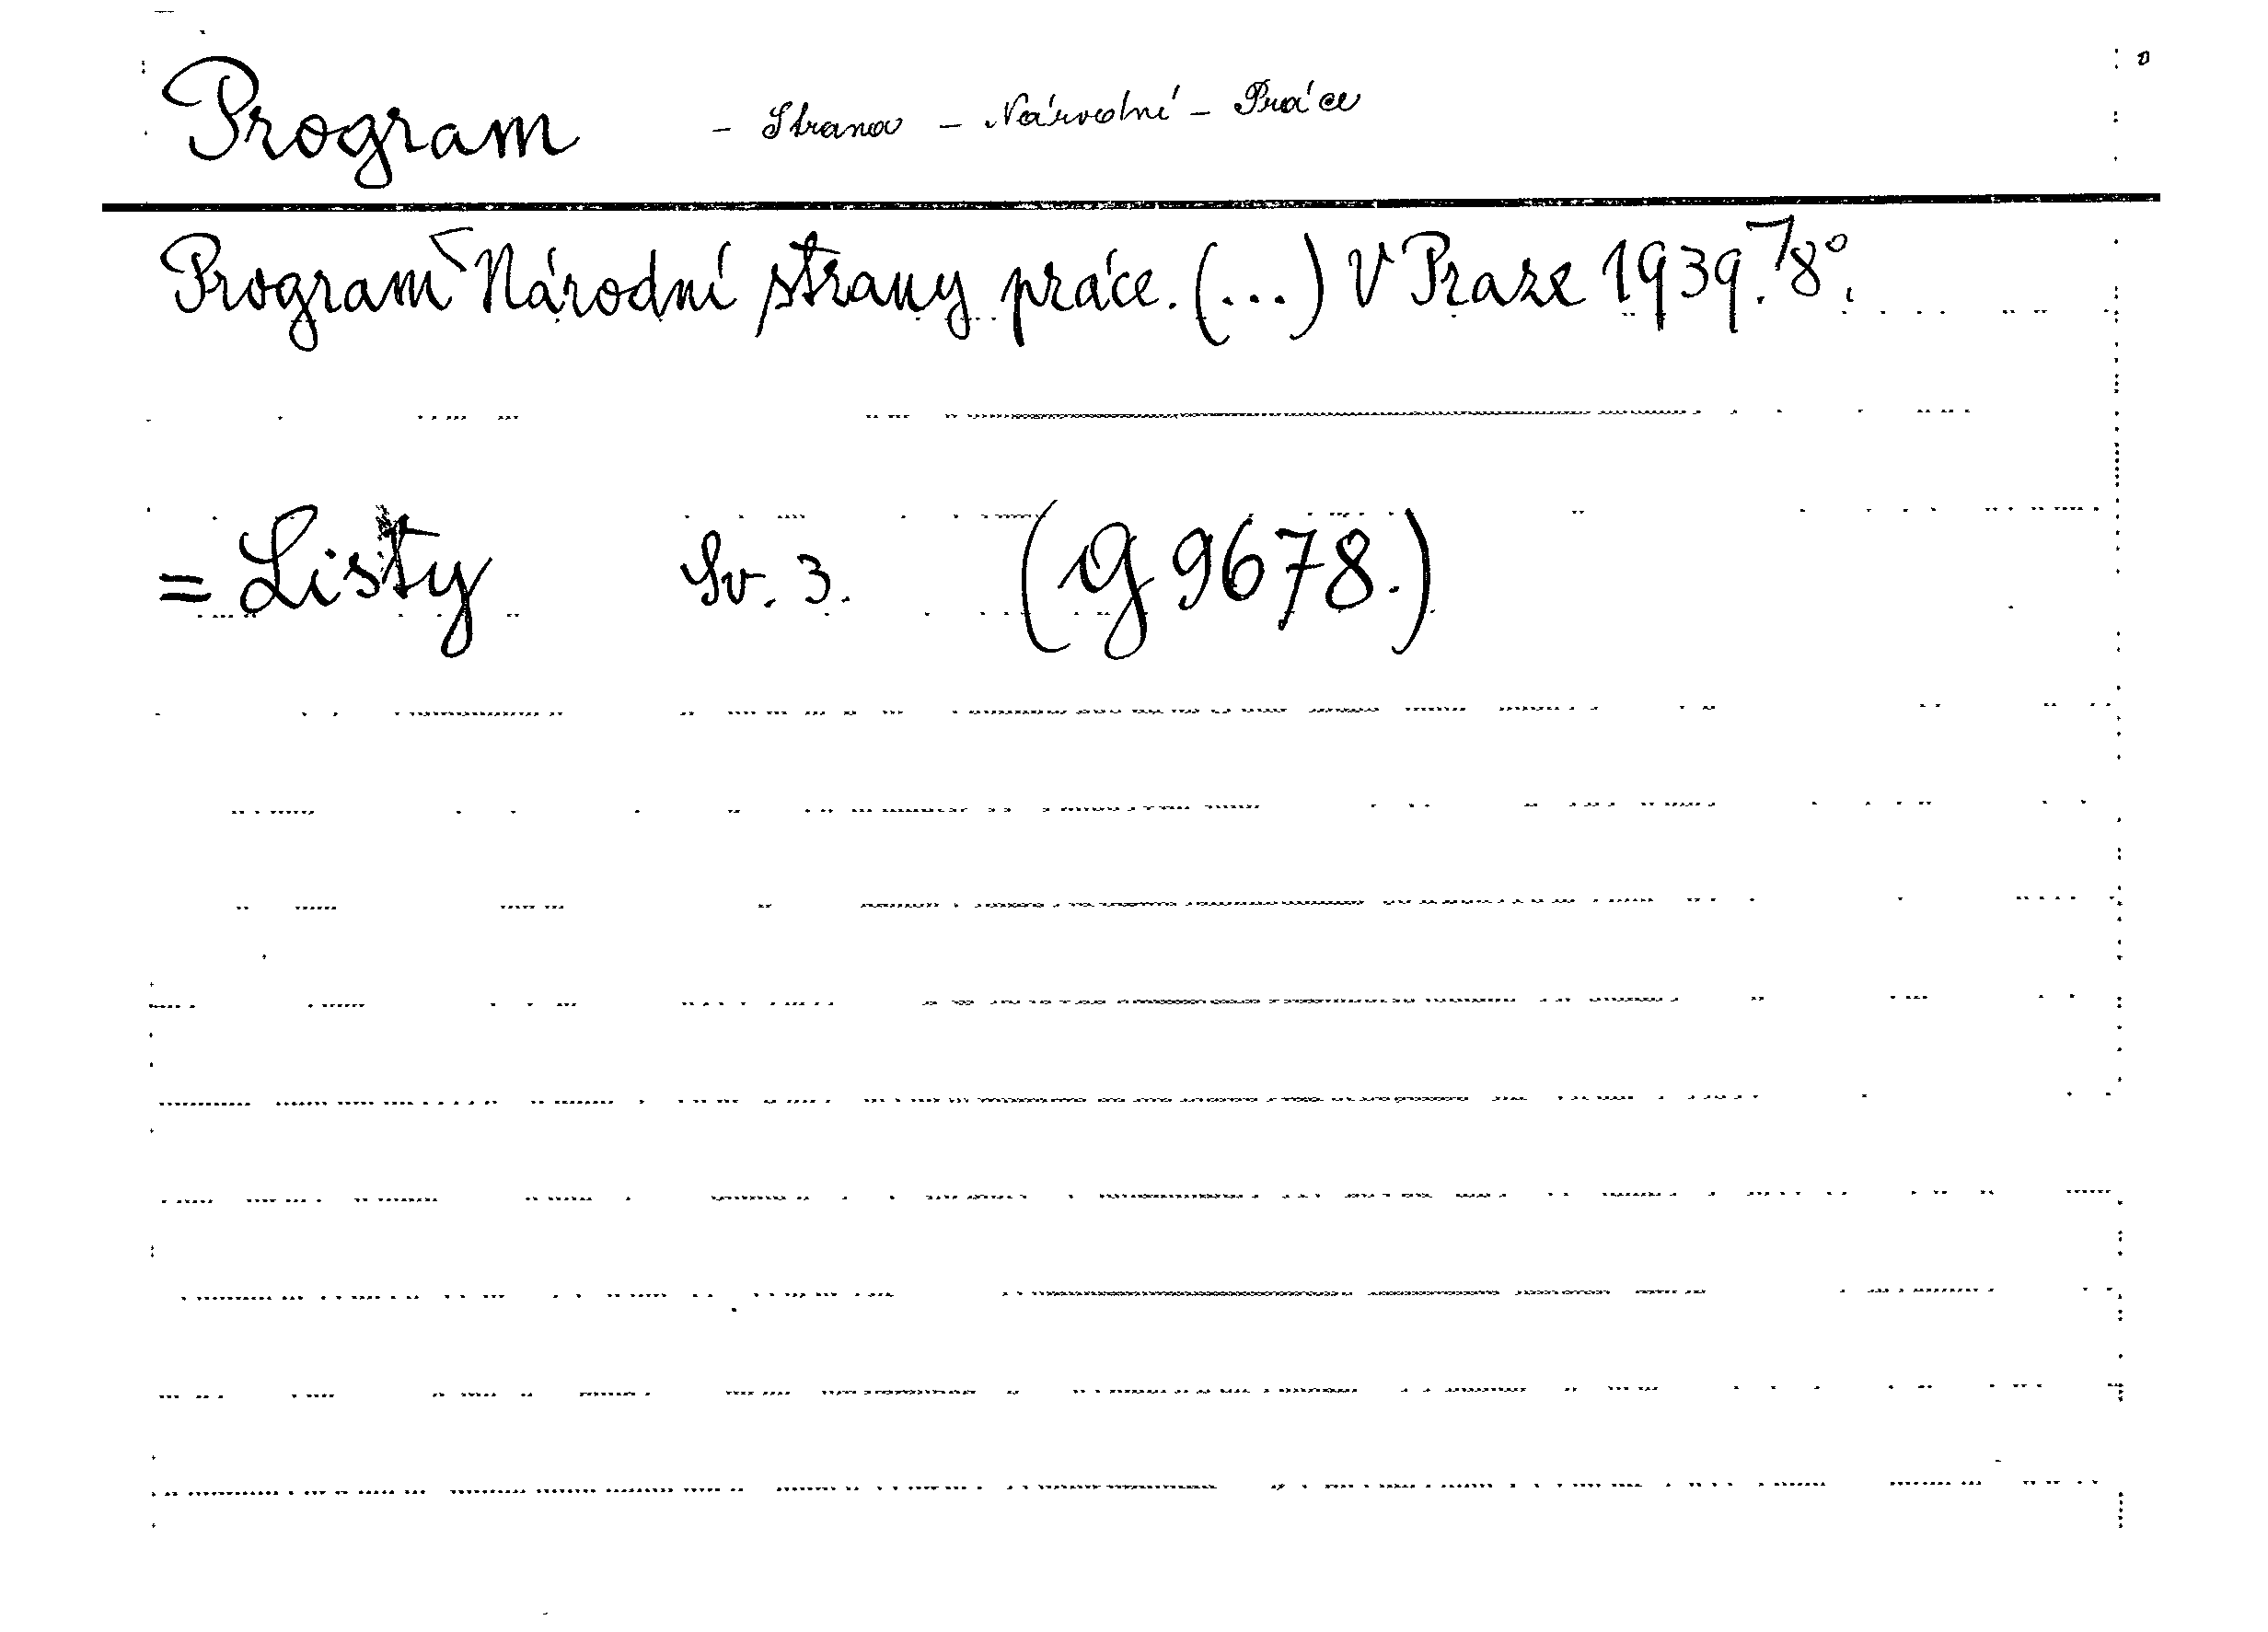 Program - Strana - Národní - Práce
Program Národní strany práce. (...) V Praze 1939. 8°.
= Listy Sv. 3. (G 9678.)